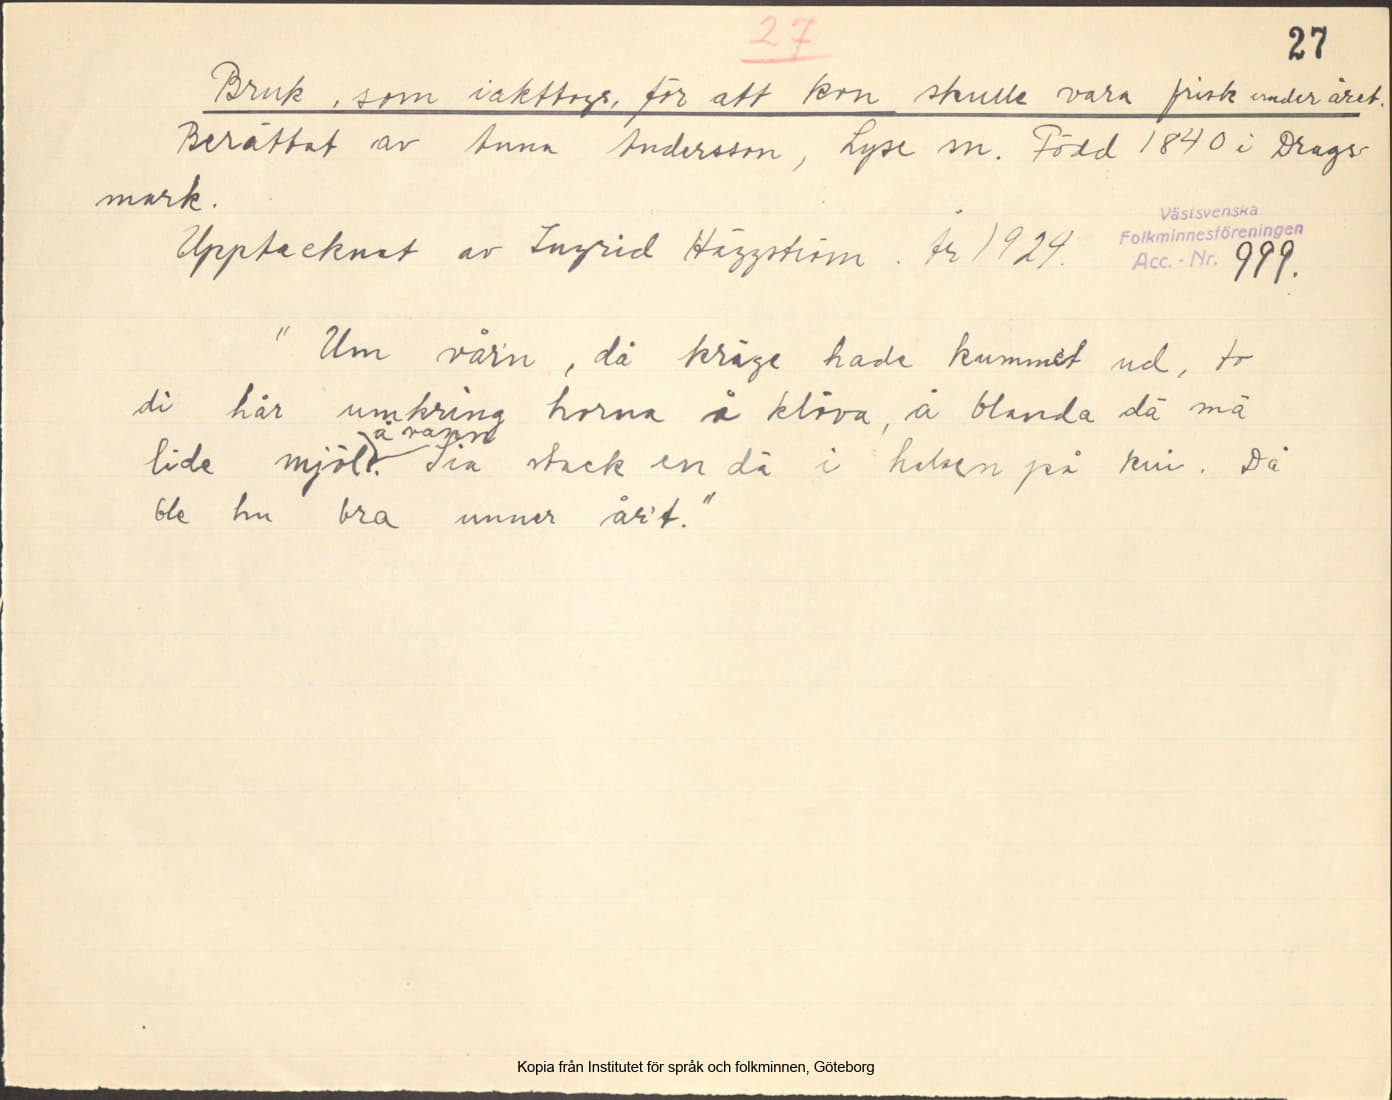 27
27
Bruk, som iakttogs, för att kon skulle vara frisk under året.
Berättat av Anna Andersson, Lyse sn. Född 1840 i Drags-
mark.
Upptecknat av Ingrid Häggström. År 1924.
Västsvenska
Folkminnesföreningen
Acc. - Nr. 999.
" Um vårn, då kräge hade kummet ud, to
di hår umkring horna å klöva, å blanda dä mä
å vann
lide mjöl. Sia stack en dä i halsen på kui. Då
ble hu bra unner årit."
Kopia från Institutet för språk och folkminnen, Göteborg